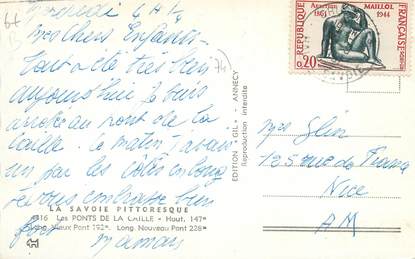 4 H 1/4
Mes chers Enfants
tout a été très bien
aujourd'hui je suis
arrêté au pont de la
Caille. le matin j'avais
un par les côtes en long
je vous embrasse bien
fort
Maman
LA SAVOIE PITTORESQUE
Les PONTS DE LA CAILLE - Haut. 147m
Long. Vieux Pont 192m. Long. Nouveau Pont 228m
EDITION "GIL" - ANNECY
Reproduction interdite
REPUBLIQUE FRANÇAISE
ARISTIDE MAILLOL
1861 1944
0,20
POSTES
SAVOIE
74
Mes Glin
125 rue de France
Nice
A M